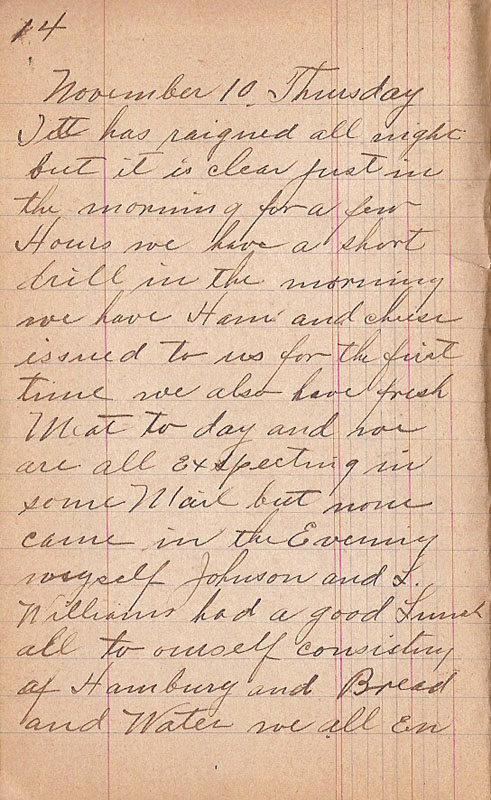 14
November 10. Thursday
Itt has raigned all night
but it is clear just in
the morning for a few
Hours we have a short
drill in the morning
we have Ham and chese
issued to us for the first
time we also have fresh
Meat to day and we
are all Exspecting in
some Mail but none
came in the Evening
myself Johnson and L.
Williams had a good Lunch
all to ourself consisting
of Hamburg and Bread
and Water we all En